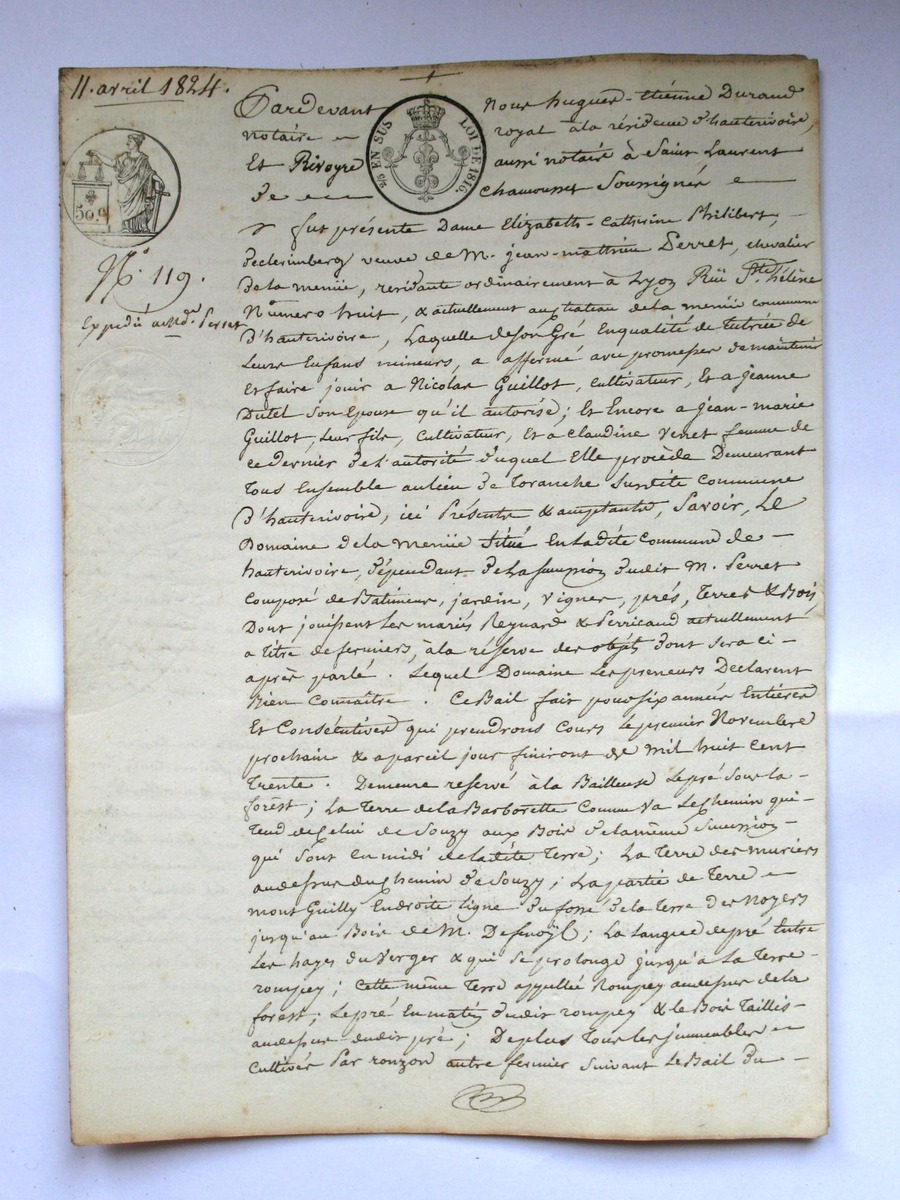 11. avril 1824.
Pardevant Nous hugues-étiénne Durand
notaire royal à la résidence d'hauterivoire,
Et Rivoyre aussi notaire à Saint Laurent
de chamousset Soussignés
EN SUS LOI DE 1816.
50 c
N.° 119.
Expedié a Md.e Perret
fut présente Dame Elizabeth-Catherine Philibert,
veuve de M. jean-mathieu Perret, chevalier
de la menüe, residante ordinairement à Lyon Rüe Ste. hélène
Numero huit, & actuellement au chateau de la menüe commune
d'hauterivoire, Laquelle de son Gré En qualité de tutrice de
Leurs Enfans mineurs, a affermé avec promesses de maintenir
Et faire jouir a Nicolas Guillot, Cultivateur, Et a jeanne
Dutel son Epouse qu'il autorise; Et Encore a jean-marie
Guillot, Leur fils, Cultivateur, Et a Claudine Venet femme de
ce dernier de L'autorité duquel Elle procède Demeurant
tous Ensemble au lieu de Toranche Susdite Commune
d'hauterivoire, ici Présents & acceptants, Savoir, Le
Domaine de la menüe Situé En ladite Commune de
hauterivoire, dépendant de La succession dudit M. Perret
Composé de Batimens, jardin, Vignes, prés, Terres & Bois
Dont jouissent Les mariés Reynard & Perricaud actuellement
a titre de fermiers, à la réserve des objets dont sera ci-
après parlé. Lequel Domaine Les preneurs Déclarent
Bien Connaître. Ce Bail fait pour six années Entières
Et Consécutives qui prendrons Cours Le premier Novembre
prochain & a pareil jour finiront de Mil huit Cent
Trente. Demeure reservé à la Bailleuse Le pré Sous la-
forêst; La Terre de la Barborette Comme Va Le Chemin qui-
tend de Celui de Souzy aux Bois de la même Succession-
qui Sont Au midi de ladite Terre; La Terre des muriers
au dessus du Chemin de Souzy; La partie de Terre
mont Guilly En droite ligne du fossé de la Terre des Noyers
jusqu'au Bois de M. ; La Langue de pré Entre
Les hayes du Verger & qui Se prolonge jusqu'à La Terre-
rompey; Cette même Terre appellée Rompey au dessus de la
forest; Le pré En matin dudit rompey & le Bois Taillis-
au dessus dudit pré; De plus Tous les immeubles
Cultivés Par ronzon autre fermier Suivant Le Bail du